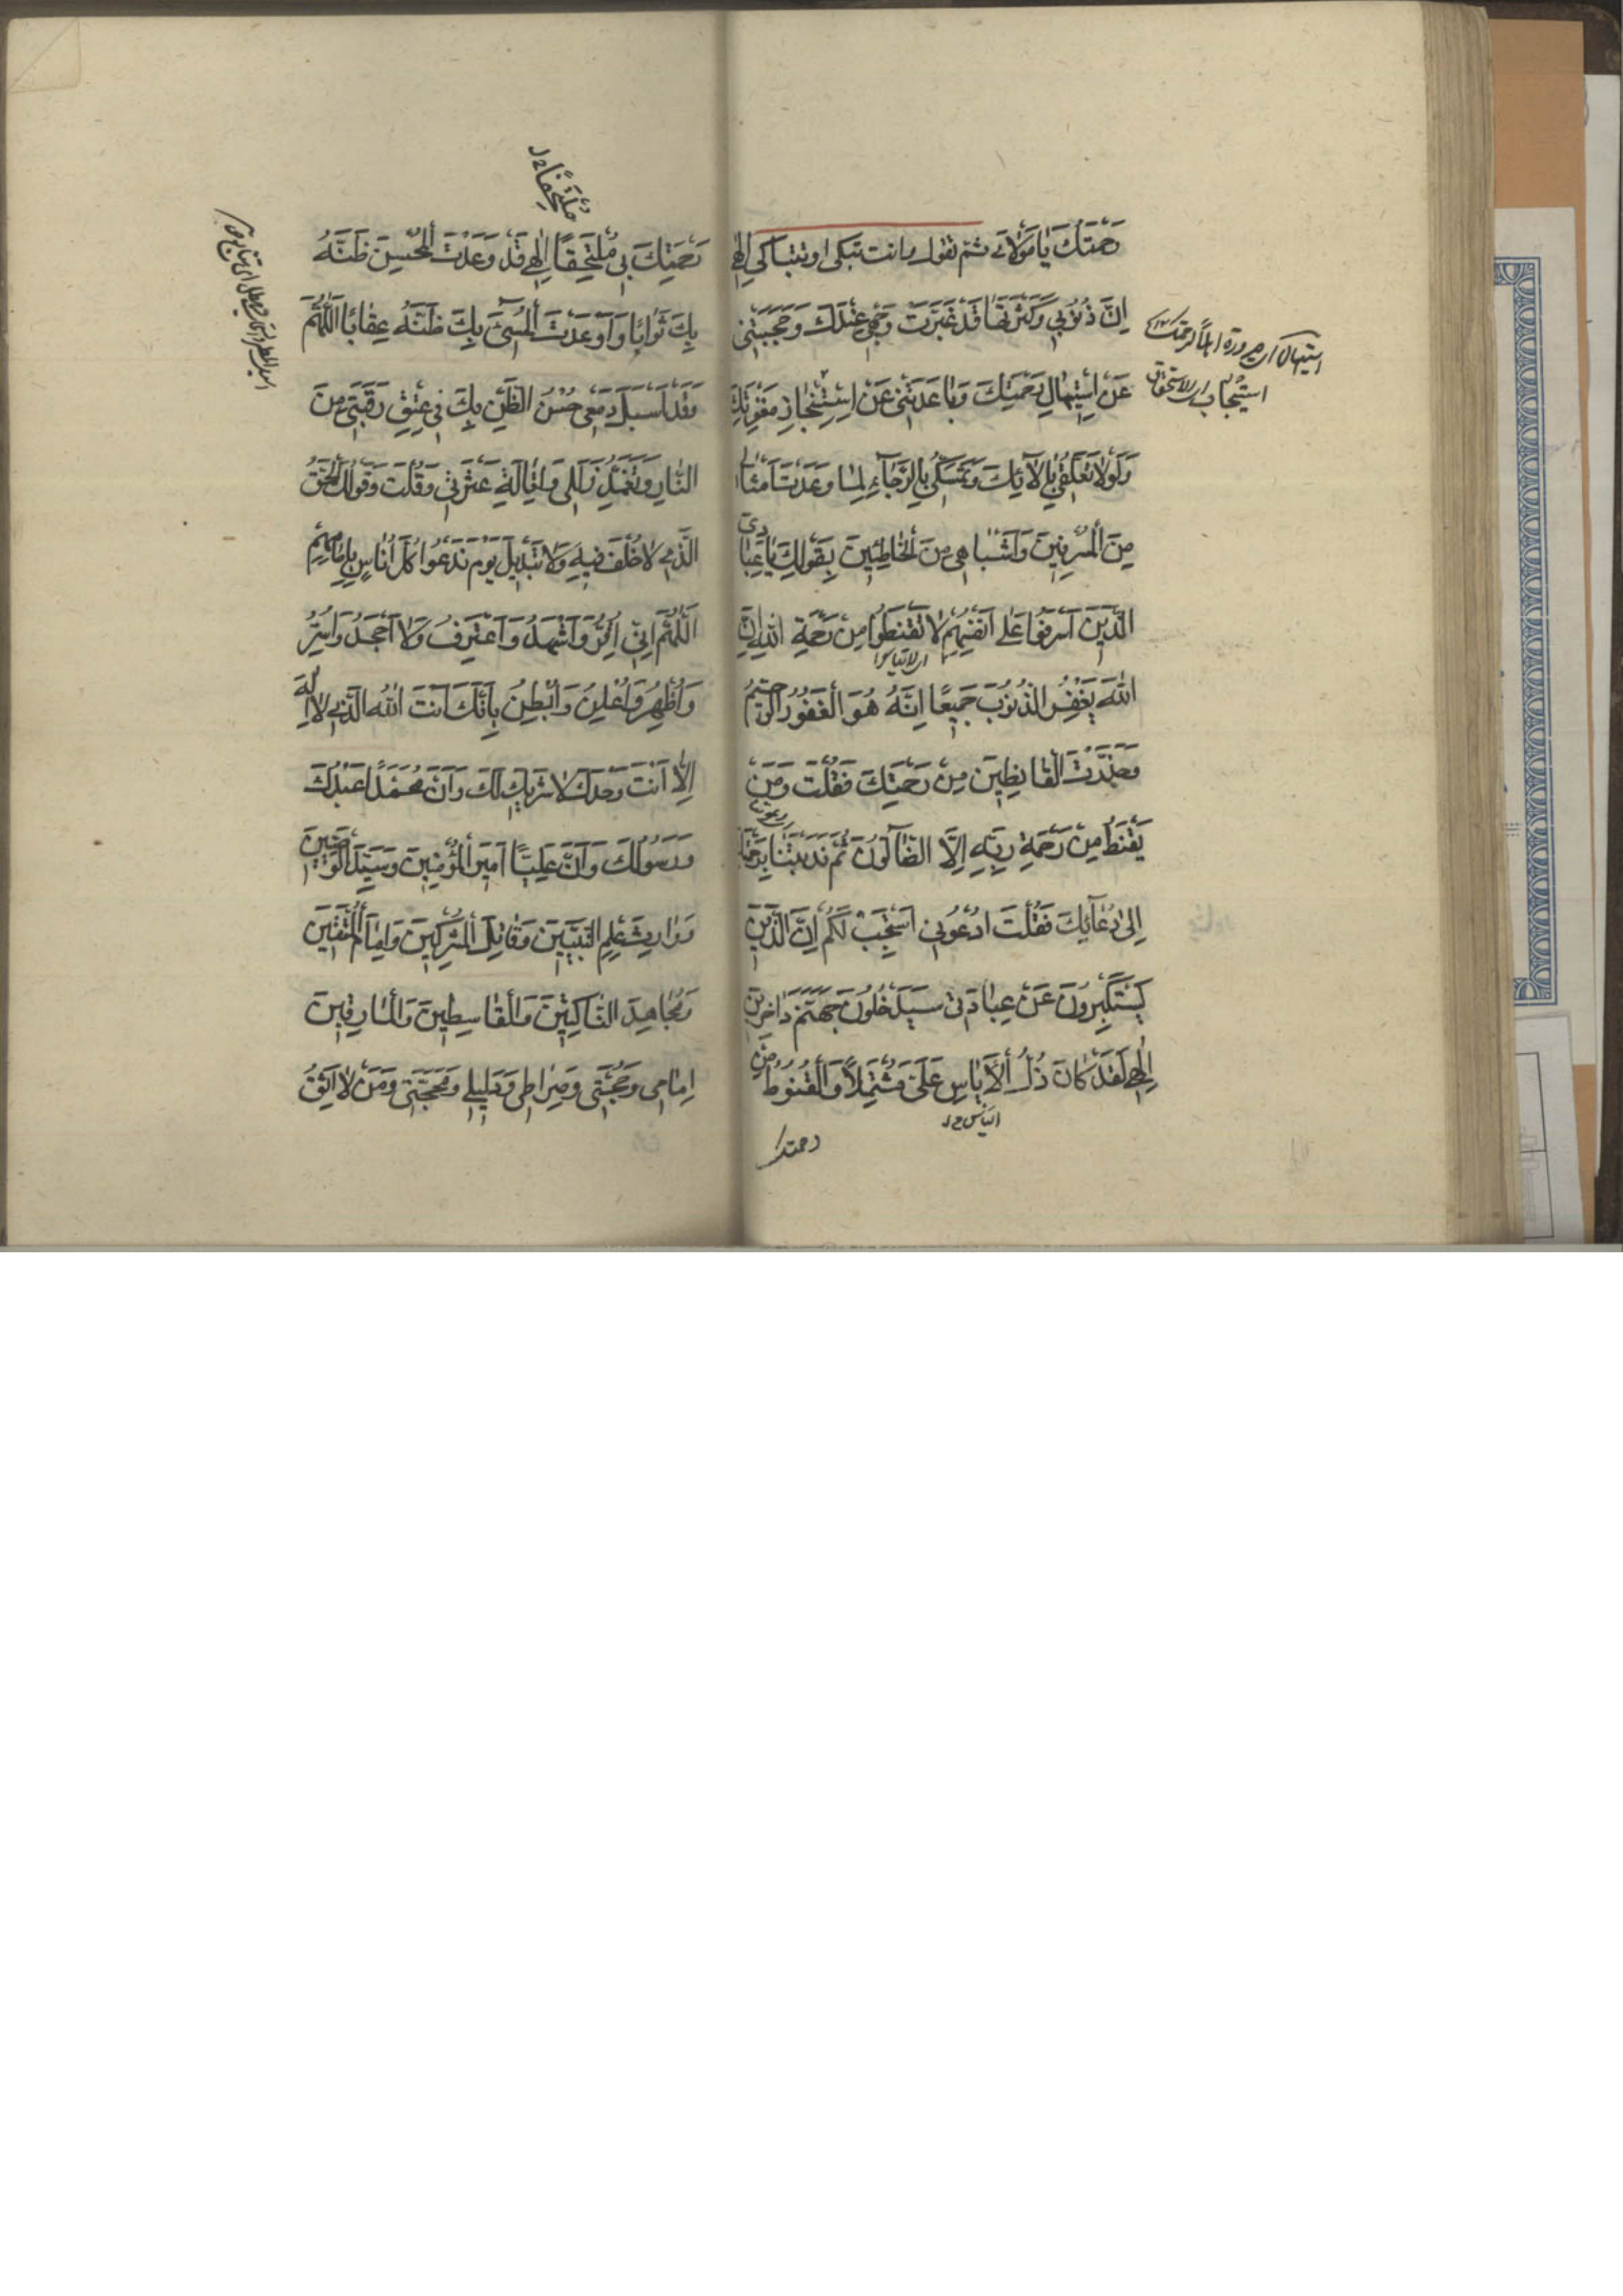 رَحْمَتَكَ يَا مَوْلَايَ ثم تقول وانت تبكى او تتباكى اِلٰهِي
اِنَّ ذُنُوبِي وَكَثْرَتَهَا قَدْ غَبَّرَتْ وَجْهِي عِنْدَكَ وَحَجَبَتْنِي
عَنْ اِسْتِيهَالِ رَحْمَتِكَ وَبَاعَدَتْنِي عَنْ اِسْتِنْجَازِ مَغْفِرَتِكَ
وَلَوْلَا تَعَلُّقِي بِاٰلَائِكَ وَتَمَسُّكِي بِالرَّجَاءِ لِمَا وَعَدْتَ اَمْثَالِي
مِنَ الْمُسْرِفِينَ وَاَشْبَاهِي مِنَ الْخَاطِئِينَ بِقَوْلِكَ يَا عِبَادِيَ
الَّذِينَ اَسْرَفُوا عَلٰى اَنْفُسِهِمْ لَا تَقْنَطُوا مِنْ رَحْمَةِ اللّٰهِ اِنَّ
اللّٰهَ يَغْفِرُ الذُّنُوبَ جَمِيعًا اِنَّهُ هُوَ الْغَفُورُ الرَّحِيمُ
وَحَذَّرْتَ الْقَانِطِينَ مِنْ رَحْمَتِكَ فَقُلْتَ وَمَنْ
يَقْنَطُ مِنْ رَحْمَةِ رَبِّهِ اِلَّا الضَّالُّونَ ثُمَّ نَدَبْتَنَا بِرَحْمَتِكَ
اِلٰى دُعَائِكَ فَقُلْتَ ادْعُونِي اَسْتَجِبْ لَكُمْ اِنَّ الَّذِينَ
يَسْتَكْبِرُونَ عَنْ عِبَادَتِي سَيَدْخُلُونَ جَهَنَّمَ دَاخِرِينَ
اِلٰهِي لَقَدْ كَانَ ذُلُّ الْاَيَاسِ عَلَيَّ مُشْتَمِلًا وَالْقُنُوطُ مِنْ
رحمتك
مُلْتَحِفًا
رَحْمَتِكَ بِي مُلْتَحِفًا اِلٰهِي قَدْ وَعَدْتَ الْمُحْسِنَ ظَنَّهُ
بِكَ ثَوَابًا وَاَوْعَدْتَ الْمُسِيءَ بِكَ ظَنَّهُ عِقَابًا اَللّٰهُمَّ
وَقَدْ اَسْبَلَ دَمْعِي حُسْنُ الظَّنِّ بِكَ فِي عِتْقِ رَقَبَتِي مِنَ
النَّارِ وَتَغَمُّدِ زَلَلِي وَاِقَالَةِ عَثْرَتِي وَقُلْتَ وَقَوْلُكَ الْحَقُّ
الَّذِي لَا خُلْفَ فِيهِ وَلَا تَبْدِيلَ يَوْمَ نَدْعُوا كُلَّ اُنَاسٍ بِاِمَامِهِمْ
اَللّٰهُمَّ اِنِّي اُقِرُّ وَاَشْهَدُ وَاَعْتَرِفُ وَلَا اَجْحَدُ وَاُسِرُّ
وَاُظْهِرُ وَاُعْلِنُ وَاُبْطِنُ بِاَنَّكَ اَنْتَ اللّٰهُ الَّذِي لَا اِلٰهَ
اِلَّا اَنْتَ وَحْدَكَ لَا شَرِيكَ لَكَ وَاَنَّ مُحَمَّدًا عَبْدُكَ
وَرَسُولُكَ وَاَنَّ عَلِيًّا اَمِيرَ الْمُؤْمِنِينَ وَسَيِّدَ الْوَصِيِّينَ
وَوَارِثَ عِلْمِ النَّبِيِّينَ وَقَاتِلَ الْمُشْرِكِينَ وَاِمَامَ الْمُتَّقِينَ
وَمُجَاهِدَ النَّاكِثِينَ وَالْقَاسِطِينَ وَالْمَارِقِينَ
اِمَامِي وَحُجَّتِي وَصِرَاطِي وَدَلِيلِي وَمَحَجَّتِي وَمَنْ لَا اَثِقُ